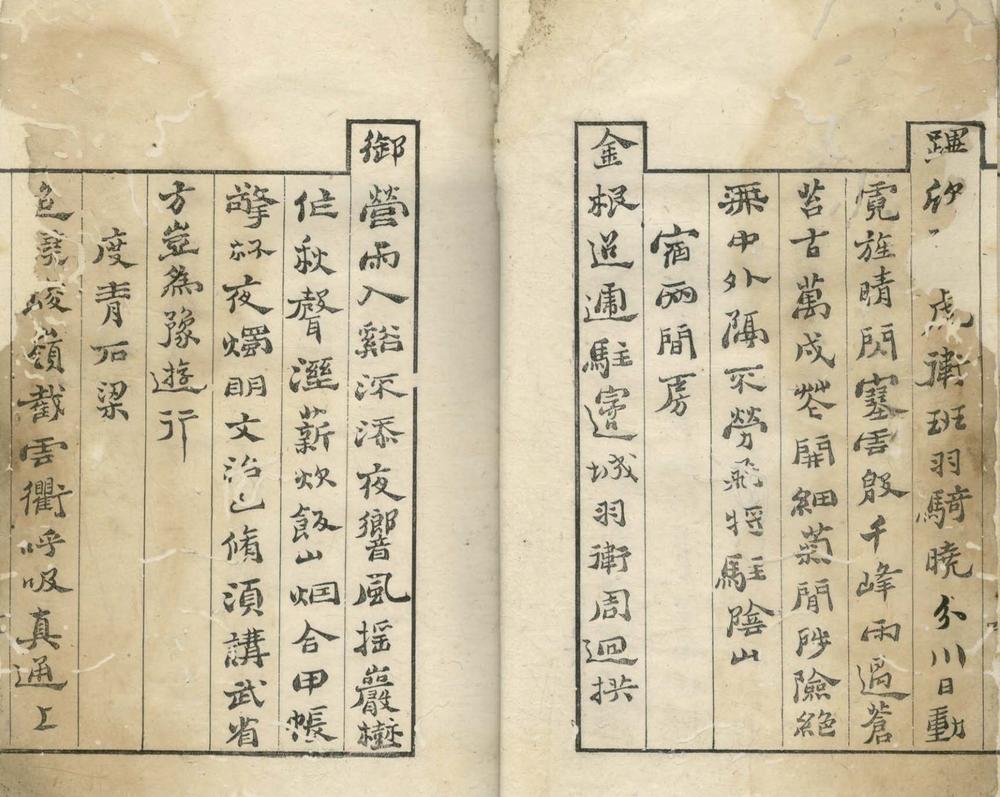 蹕欣虎衛班羽騎曉分川日動
霓旌晴閃塞雲殷千峰雨過蒼
苔古萬戍花開細菊閒陟險絕
無中外隔不勞飛將駐陰山
宿兩間房
金根迢遞駐邊城羽衛周迴拱
御營雨入谿深添夜響風搖巖樹
作秋聲溼薪炊飯山烟合甲帳
擎杯夜燭明文治已脩須講武省
方豈為豫遊行
度青石梁
嶺截雲衢呼吸真通上